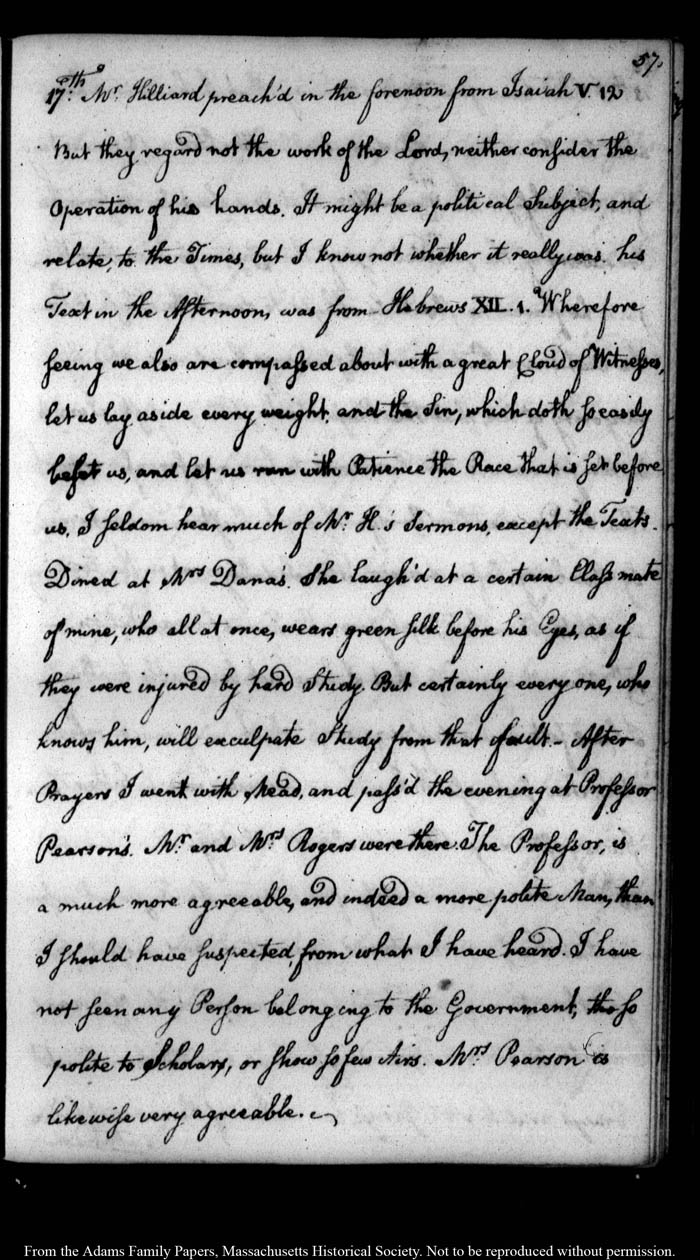 57.
17th. Mr. Hilliard preach'd in the forenoon from Isaiah V. 12
But they regard not the work of the Lord, neither consider the
Operation of his hands. It might be a political Subject, and
relate, to the Times, but I know not whether it really was. his
Text in the Afternoon, was from Hebrews XII. 1. "Wherefore
seeing we also are compassed about with a great Cloud of Witnesses,
let us lay aside every weight, and the Sin, which doth so easily
beset us, and let us run with Patience the Race that is set before
us. I seldom hear much of Mr. H.'s Sermons, except the Texts.
Dined at Mrs Dana's. She laugh'd at a certain Class mate
of mine, who all at once, wears green silk before his Eyes, as if
they were injured by hard Study. But certainly every one, who
knows him, will exculpate Study from that fault. - After
Prayers I went with Mead, and pass'd the evening at Professor
Pearson's. Mr. and Mrs Rogers were there. The Professor, is
a much more agreeable, and indeed a more polite Man, than
I should have suspected, from what I have heard. I have
not seen any Person belonging to the Government, so
polite to Scholars, or show so few Airs. Mrs Pearson is
likewise very agreeable.
From the Adams Family Papers, Massachusetts Historical Society. Not to be reproduced without permission.